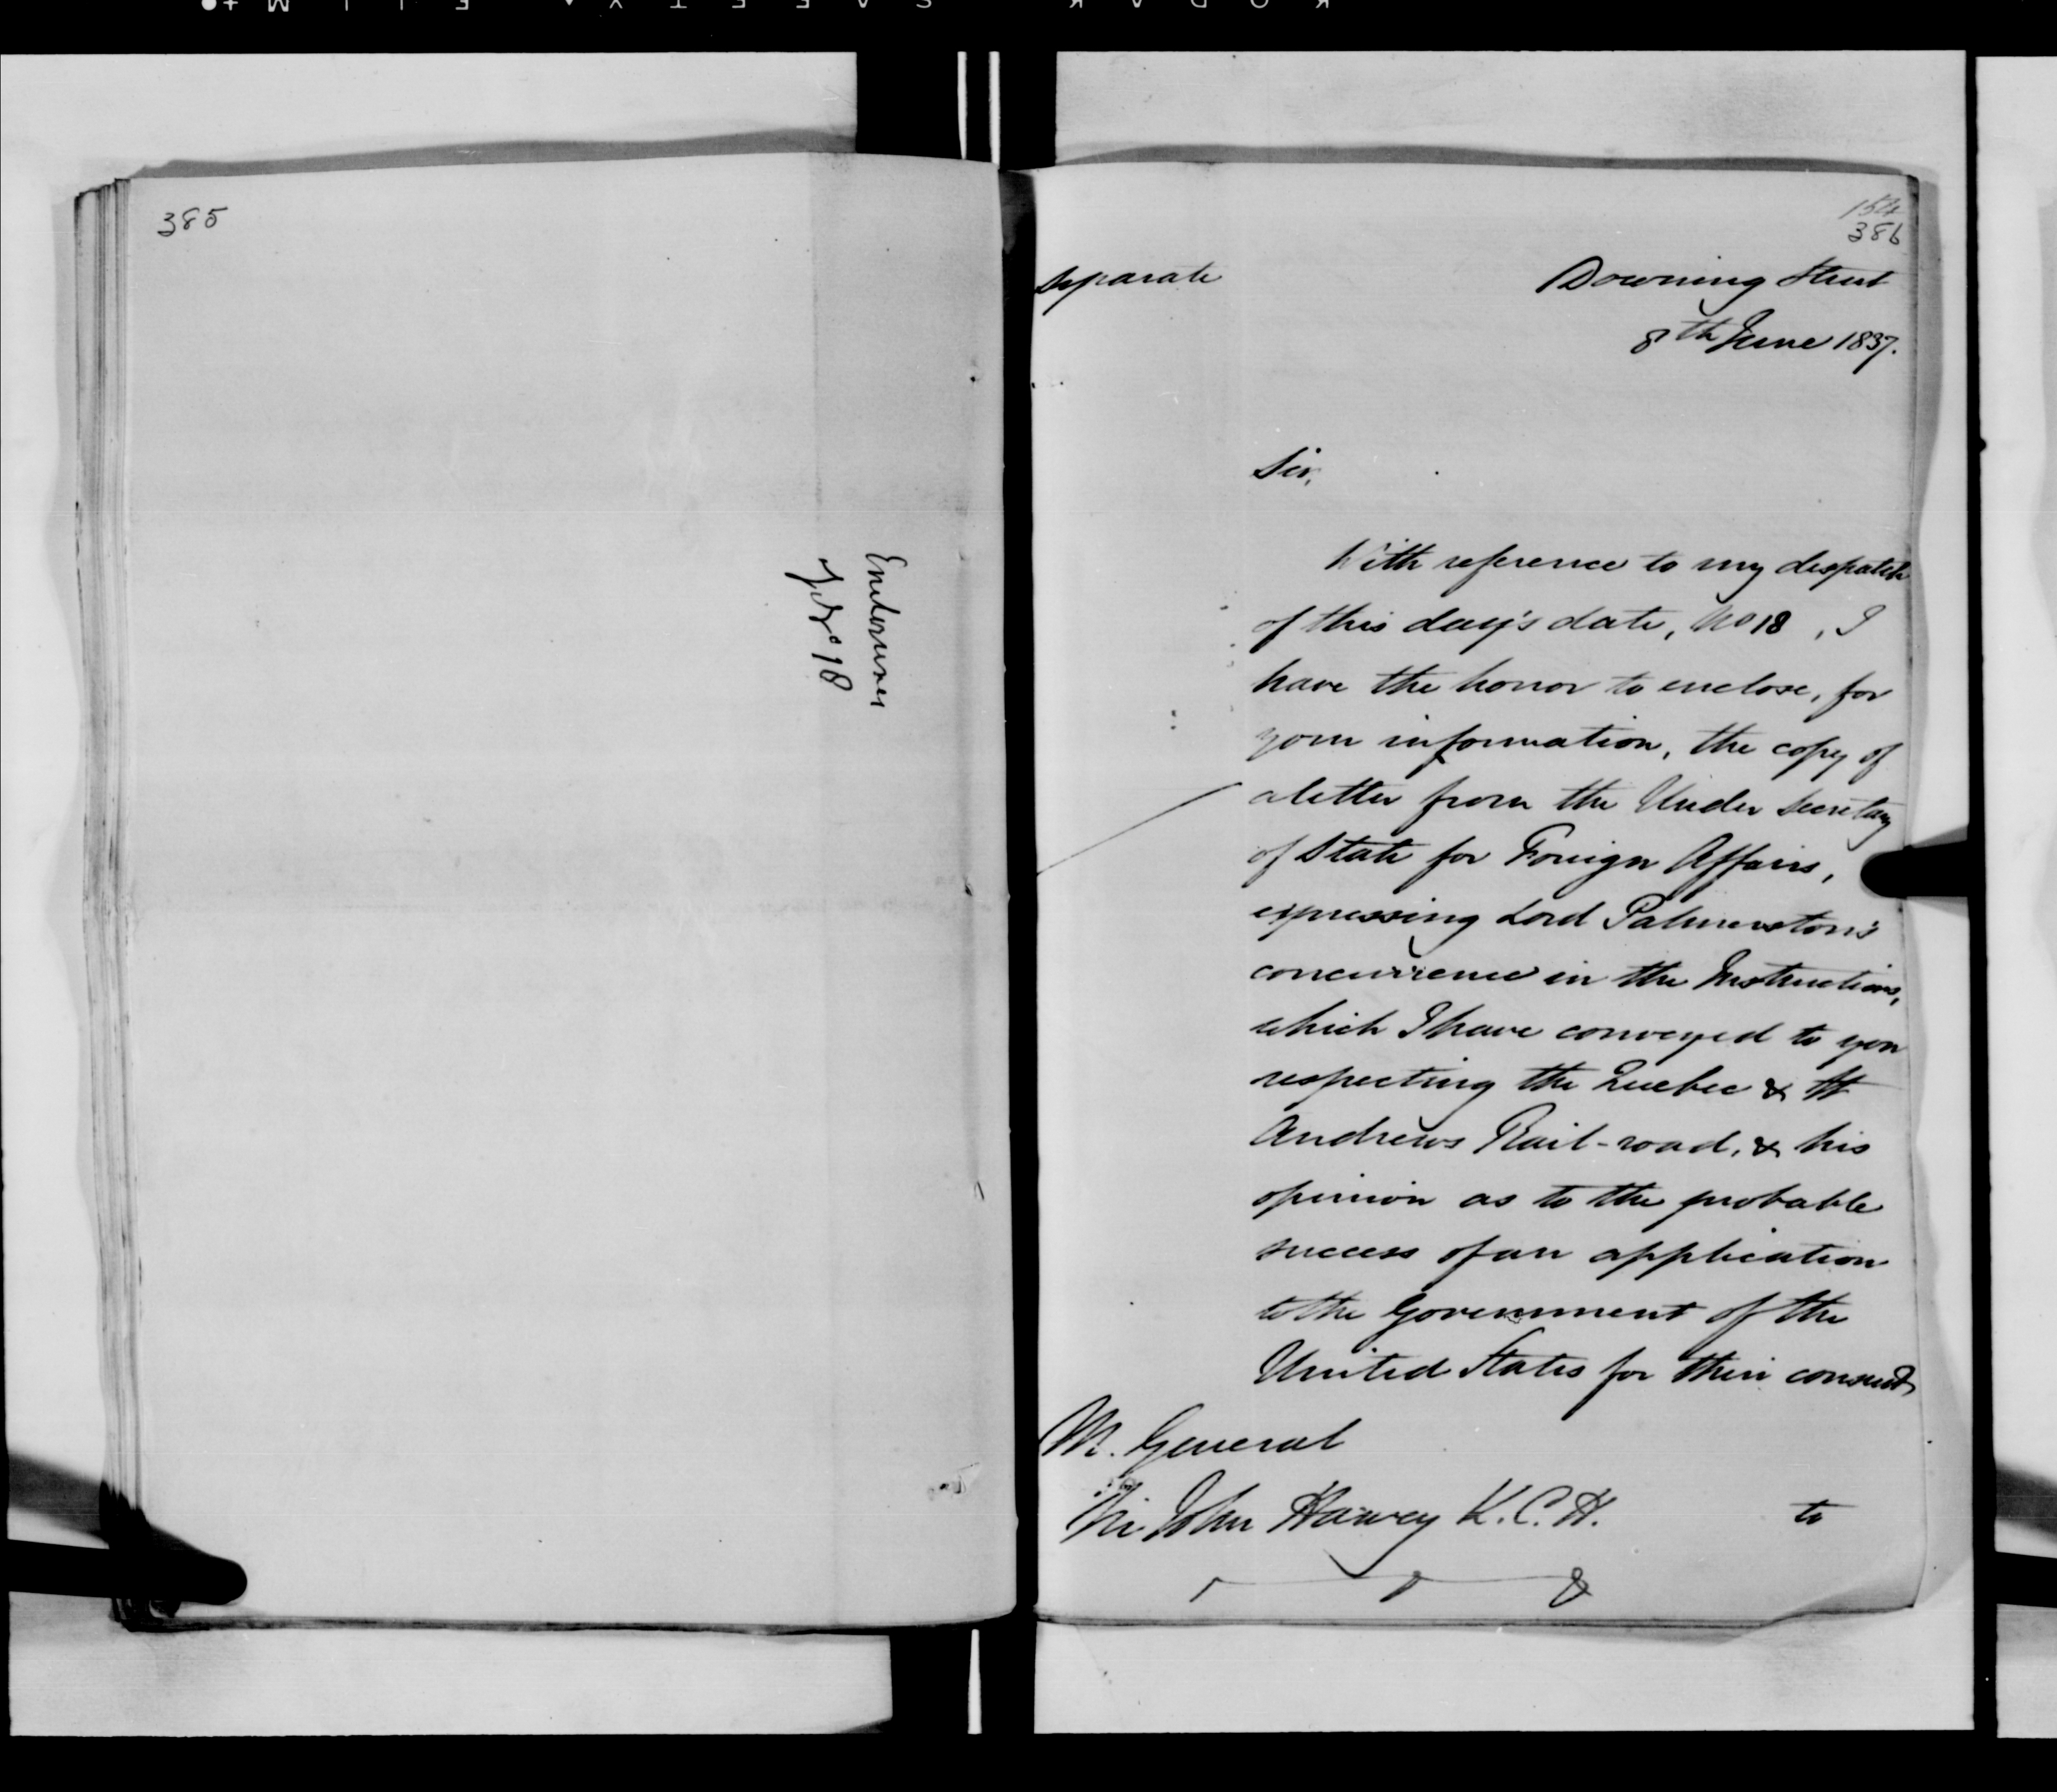 385
Enclosures
in No 18
154
386
Separate
Downing Street
8th June 1837.
Sir,
With reference to my despatch
of this day's date, No 18, I
have the honor to enclose, for
your information, the copy of
a letter from the Under Secretary
of State for Foreign Affairs,
expressing Lord Palmerston's
concurrence in the Instructions,
which I have conveyed to you
respecting the Quebec & St
Andrews Rail-road, & his
opinion as to the probable
success of an application
to the Government of the
United States for their consent
M. General
Sir John Harvey K.C.H.
to